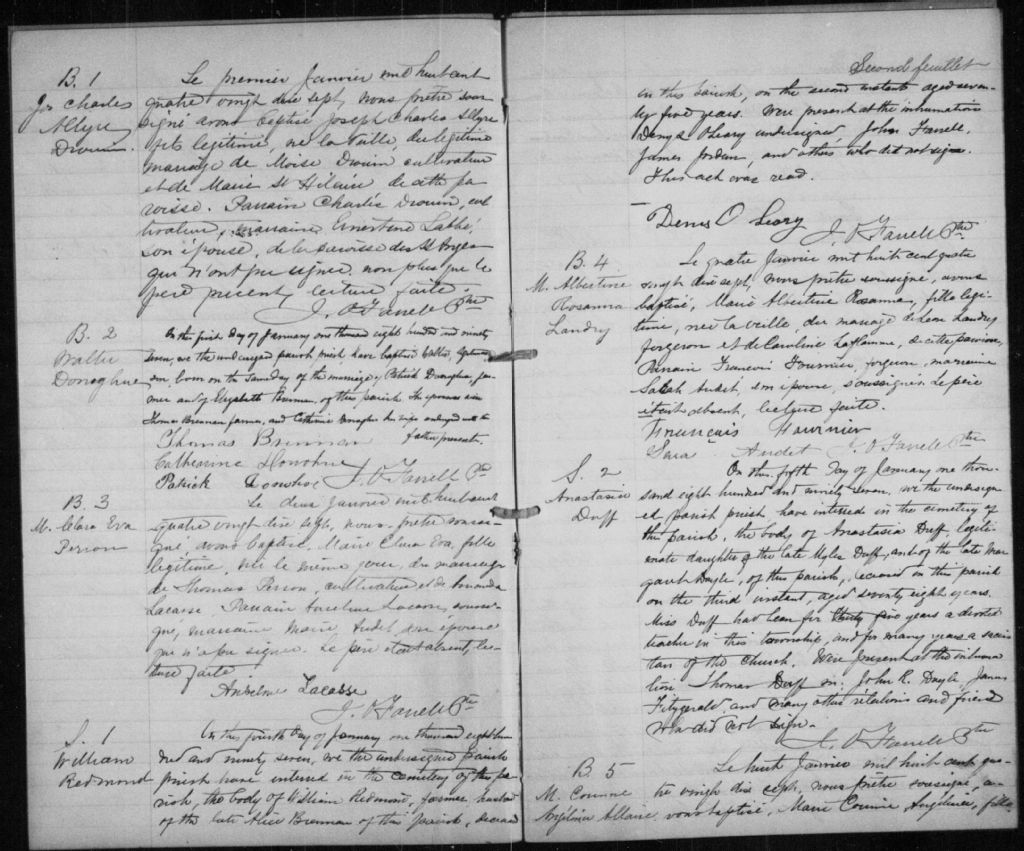 B. 1
Js Charles
Allyre
Drouin
Le premier Janvier mil huit cent
quatre vingt dix sept, nous prêtre sous
signé avons baptisé Joseph Charles Allyre
fils legitime, né la veille, du légitime
mariage de Moise Drouin cultivateur
et de Marie St Hilaire de cette pa
roisse. Parrain Charles Drouin, cul
tivateur, marraine Labbé,
son épouse, de la paroisse des St Anges
qui n'ont pu signer non plus que le
père présent, lecture faite.
J. O Farrell Ptre
B. 2
Wallie
Donoghue
On the first day of January one thousand eight hundred and ninety
seven, we the undersigned parish priest have baptised Wallie,
born on the same day of the marriage of Patrick Donoghue, far
mer and of Elizabeth Brennan of this parish. The sponsors were
Thomas Brennan farmer, and Catherine Donoghue his wife undersigned with the
father present.
Thomas Brennan
Catherine Donohue
Patrick Donohoe J. O Farrell Ptre
B. 3
M. Clara Eva
Perron
Le deux Janvier mil huit cent
quatre vingt dix sept, nous prêtre soussi-
gné, avons baptisé, Marie Clara Eva, fille
legitime, née le même jour, du mariage
de Thomas Perron, cultivateur et de Amanda
Lacasse. Parrain Anselme Lacasse, soussi-
gné, marraine Marie Audet, son épouse
qui n'a pu signer. Le père était absent, lec-
ture faite
Anselme Lacasse
J. O Farrell Ptre
S. 1
William
Redmond
On this fourth day of January one thousand eight hun
dred and ninety seven, we the undersigned parish
priest have interred in the cemetery of this pa
rish, the body of William Redmond, farmer, husband
of the late Alice Brennan of this parish, deceased
Second feuillet
in this parish, on the second instant aged seven-
ty five years. Were present at the inhumation
Denys O'Leary undersigned, John Farrell,
James Jordan, and others who did not sign.
This act was read.
Denis O Leary
J. O Farrell Ptre
B. 4
M. Albertine
Rosanna
Landry
Le quatre Janvier mil huit cent quatre
vingt dix sept, nous prêtre soussigné, avons
baptisé, Marie Albertine Rosanna, fille legi-
time, née la veille, du mariage de Léon Landry
forgeron et de Caroline Laflamme, de cette paroisse,
Parrain Francois Fournier, forgeron, marraine
Sarah Audet, son épouse, soussignés. Le père
était absent, lecture faite.
François Fournier
Sara Audet J. O Farrell Ptre
S. 2
Anastasia
Duff
On this fifth day of January one thou-
sand eight hundred and ninety seven, we the undersign-
ed parish priest have interred in the cemetery of
this parish, the body of Anastasia Duff, legiti-
mate daughter of the late Myles Duff, and of the late Mar
garet Doyle, of this parish, deceased in this parish
on the third instant, aged seventy eight years.
Miss Duff had been for thirty five years a devoted
teacher in this township, and for many years a sacris
tan of the church. Were present at the inhuma
tion Thomas Duff sr. John R. Doyle, James
Fitzgerald, and many other relations and friend
who did not sign.
J. O Farrell Ptre
B. 5
M. Corinne
Angelina Allaire
Le huit Janvier mil huit cent qua-
tre vingt dix sept, nous prêtre soussigné, a-
vons baptisé, Marie Corinne Angelina, fille